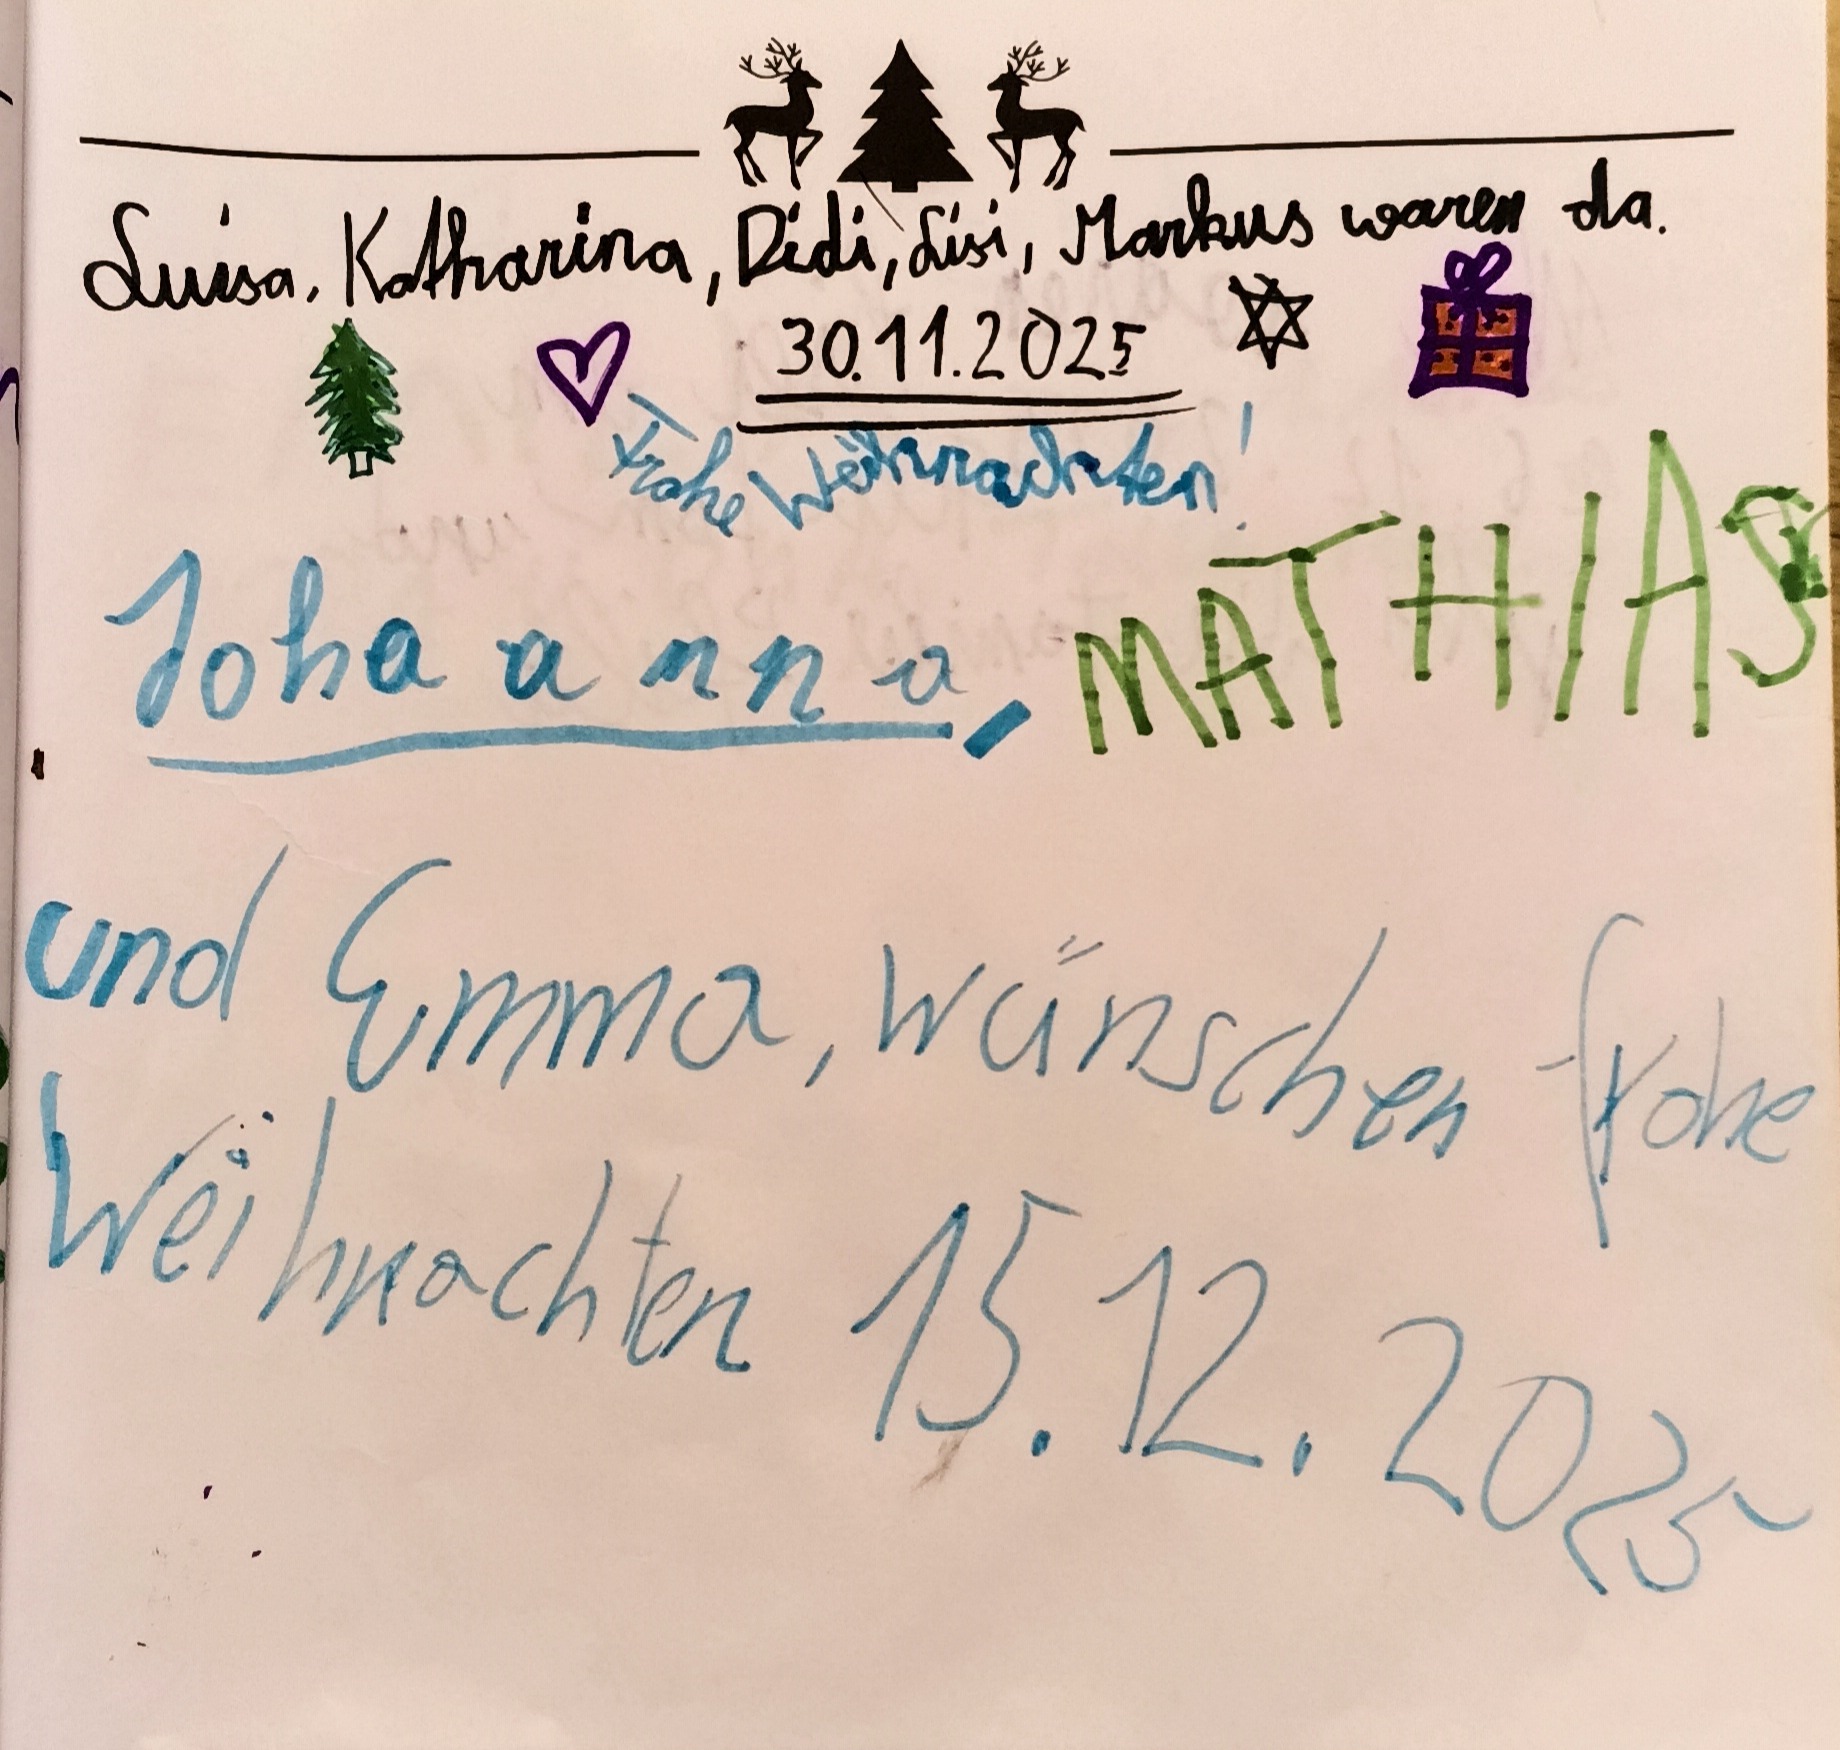 Luisa, Katharina, Didi, Lisi, Markus waren da.
30.11.2025
Frohe Weihnachten!
Joha anna, MATHIAS
und Emma, wünschen frohe
Weihnachten 15.12.2025